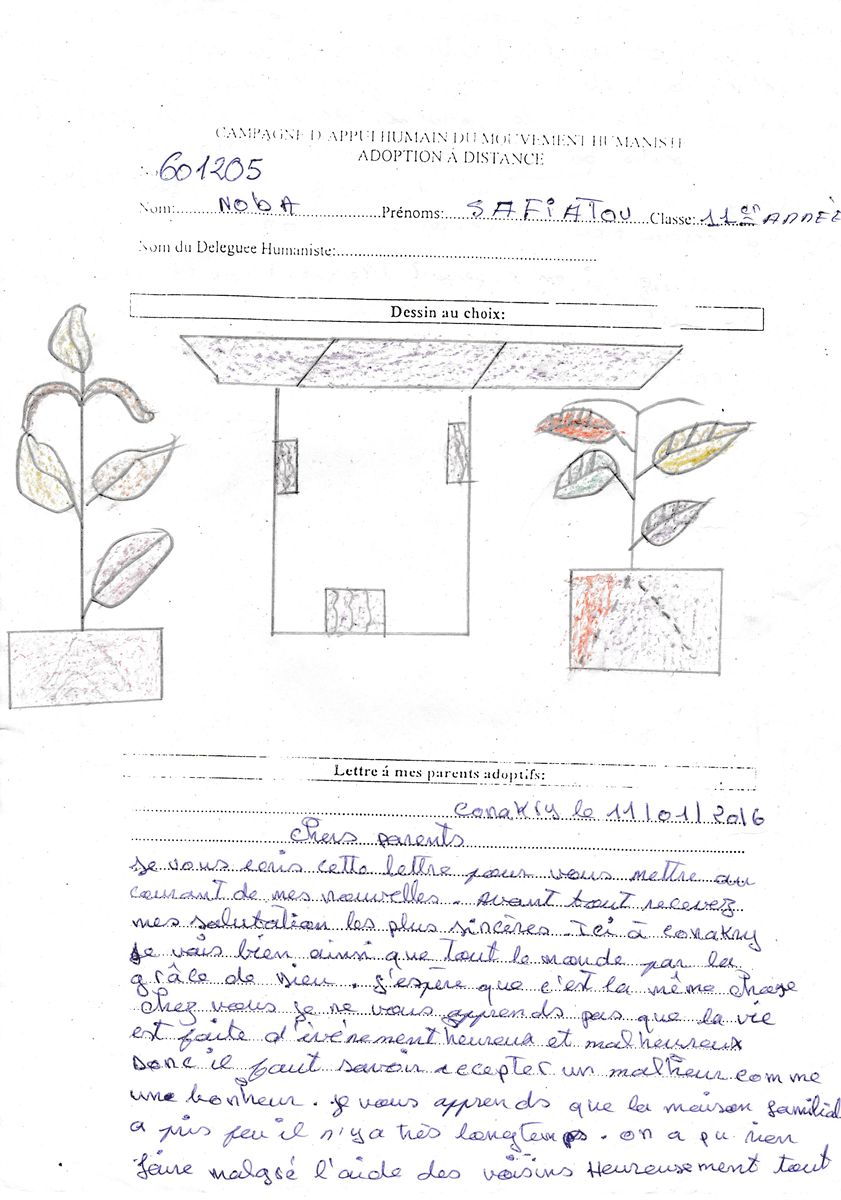 CAMPAGNE D'APPUI HUMAIN DU MOUVEMENT HUMANISTE
ADOPTION À DISTANCE
N° 601205
Nom: NobA Prénoms: SAFIATOU Classe: 11 en ANNÉE
Nom du Deleguee Humaniste:
Dessin au choix:
Lettre á mes parents adoptifs:
Conakry le 11/01/2016
Chers parents
Je vous ecris cette lettre pour vous mettre au
courant de mes nouvelles. Avant tout recevez
mes salutation les plus sincères. Ici à Conakry
je vais bien ainsi que tout le monde par la
grâce de Dieu. J'espère que c'est la même chose
chez vous je ne vous apprends pas que la vie
est faite d'événement heureux et malheureux
Donc il faut savoir accepter un malheur comme
une bonheur. Je vous apprends que la maison familial
a pris feu il n'y a très longtemps. on a pu rien
faire malgré l'aide des voisins Heureusement tout